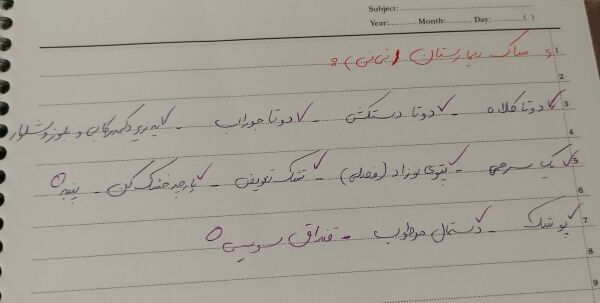 Subject:
Year: Month: Day: ( )
ساک بیمارستان (نی نی) :
1
2
3 دوتا کلاه - دوتا دستکش - دوتا جوراب - یه زیر دکمه رکابی و بلوز و شلوار
4
5 یک سرهمی - پتوی نوزاد (فصلی) - تشک تعویض - پارچه خشک کن - پنبه
6
7 پوشک - دستمال مرطوب - قنداق سوییسی
8
9